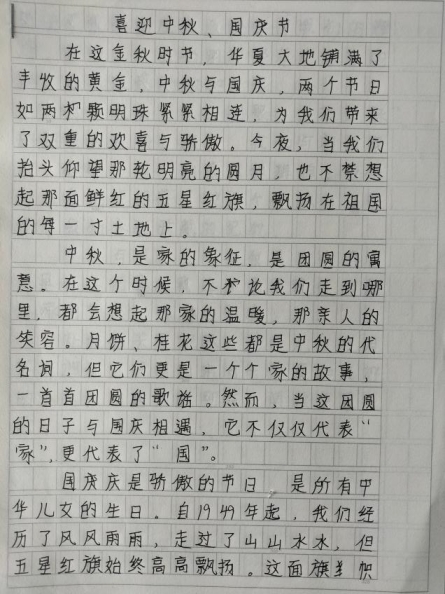 喜迎中秋、国庆节
在这金秋时节，华夏大地铺满了
丰收的黄金，中秋与国庆，两个节日
如两颗明珠紧紧相连，为我们带来
了双重的欢喜与骄傲。今夜，当我们
抬头仰望那轮明亮的圆月，也不禁想
起那面鲜红的五星红旗，飘扬在祖国
的每一寸土地上。
中秋，是家的象征，是团圆的寓
意。在这个时候，不论我们走到哪
里，都会想起那家的温暖，那亲人的
笑容。月饼、桂花这些都是中秋的代
名词，但它们更是一个个家的故事、
一首首团圆的歌谣。然而，当这团圆
的日子与国庆相遇，它不仅仅代表“
家”，更代表了“国”。
国庆庆是骄傲的节日，是所有中
华儿女的生日。自1949年起，我们经
历了风风雨雨，走过了山山水水，但
五星红旗始终高高飘扬。这面旗帜